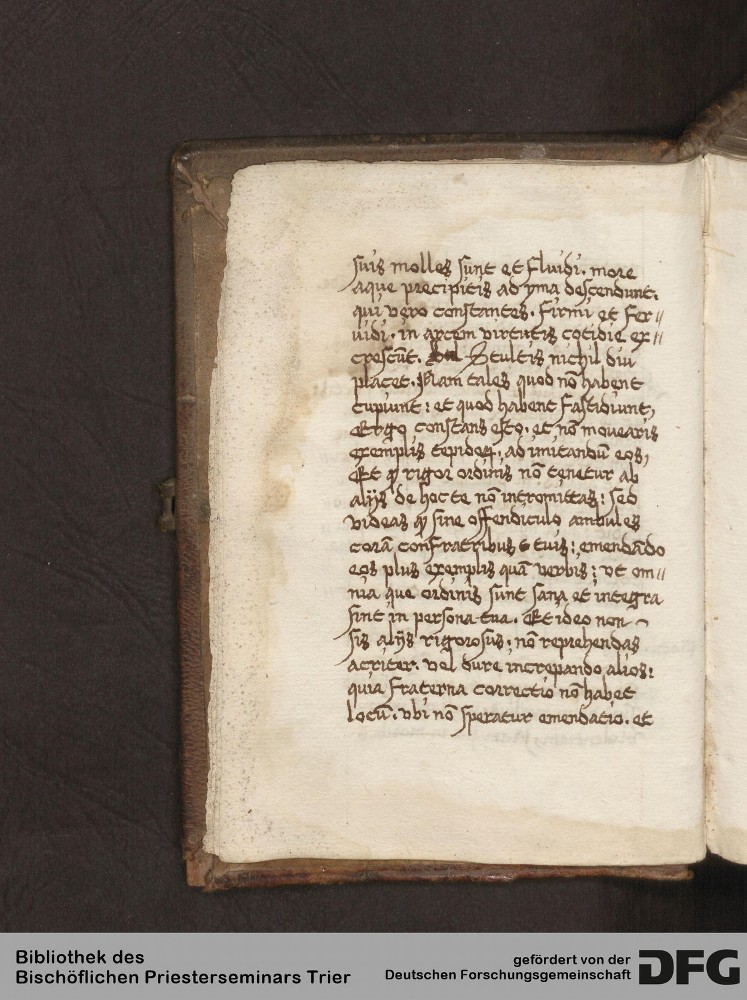 suis molles sunt et fluidi. more
aque precipitis ad yma descendunt.
qui vero constantes. firmi et fer//
uidi. in arcem virtutis cotidie ex//
crescūt. Stultis nichil diu
placet. Nam tales quod nō habent
cupiunt: et quod habent fastidiunt,
Ergo constans esto. et nō movearis
exemplis tepidoꝝ, ad imitandū eos,
Et ꝙ rigor ordinis nō tenetur ab
alijs de hoc te nō intromittas: sed
videas ꝙ sine offendiculo ambules
corā confratribus tuis: emendādo
eos plus exemplis quā verbis: vt om//
nia que ordinis sunt sana et integra
sint in persona tua. Et ideo non
sis alijs rigorosus. nō reprehendas
acriter. vel dure increpando alios:
quia fraterna correctio nō habet
locū. vbi nō speratur emendatio. et
Bibliothek des
Bischöflichen Priesterseminars Trier
gefördert von der
Deutschen Forschungsgemeinschaft
DFG